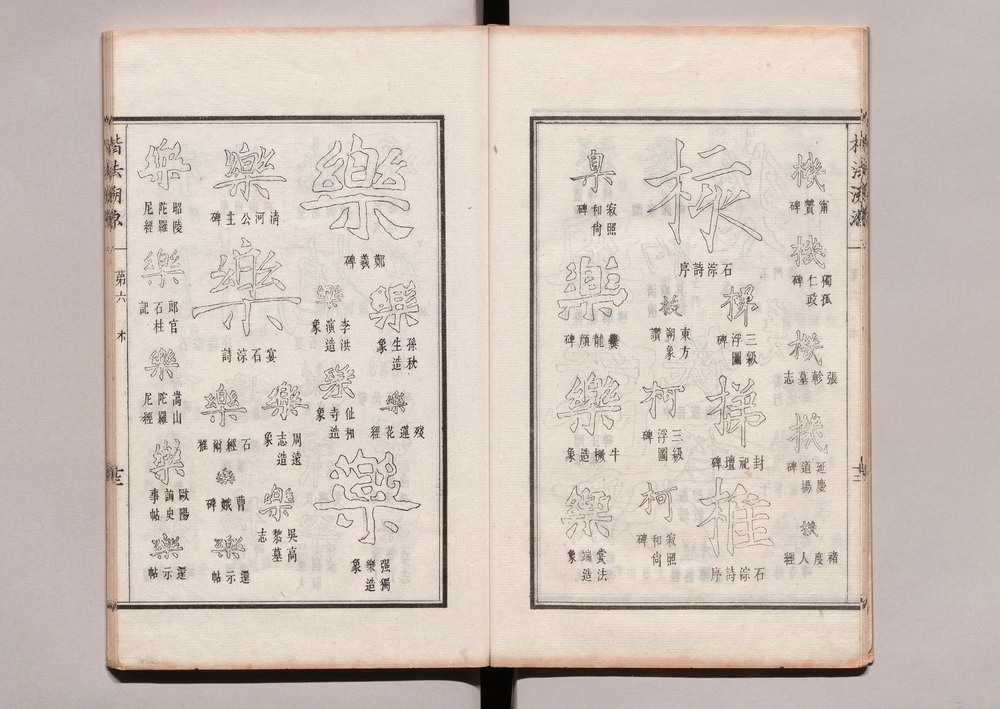 機
甯贊碑
機
獨孤仁政碑
機
張軫墓志
機
延慶道場碑
機
褚度人經
石淙詩序
梯
三級浮圖碑
東方朔象讚
梯
封祀壇碑
柯
三級浮圖碑
椎
石淙詩序
柯
寂照和尚碑
臬
寂照和尚碑
樂
爨龍顏碑
樂
牛橛造象
樂
賞法端造象
樂
鄭羲碑
樂
孫秋生造象
樂
李洪演造象
樂
殘蓮花經
樂
仙和寺造象
樂
强獨樂造象
樂
清河公主碑
樂
宴石淙詩
樂
周遠志造象
樂
石經
樂
吳高黎墓志
樂
曹娥碑
樂
還示帖
樂
昭陵陀羅尼經
樂
郎官石柱記
樂
嵩山陀羅尼經
樂
歐陽詢史事帖
樂
還示帖
楷法溯源
第六
木
十三